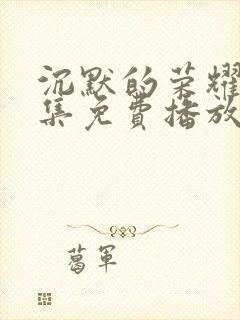 沉默的荣耀
集免費播放
葛軍